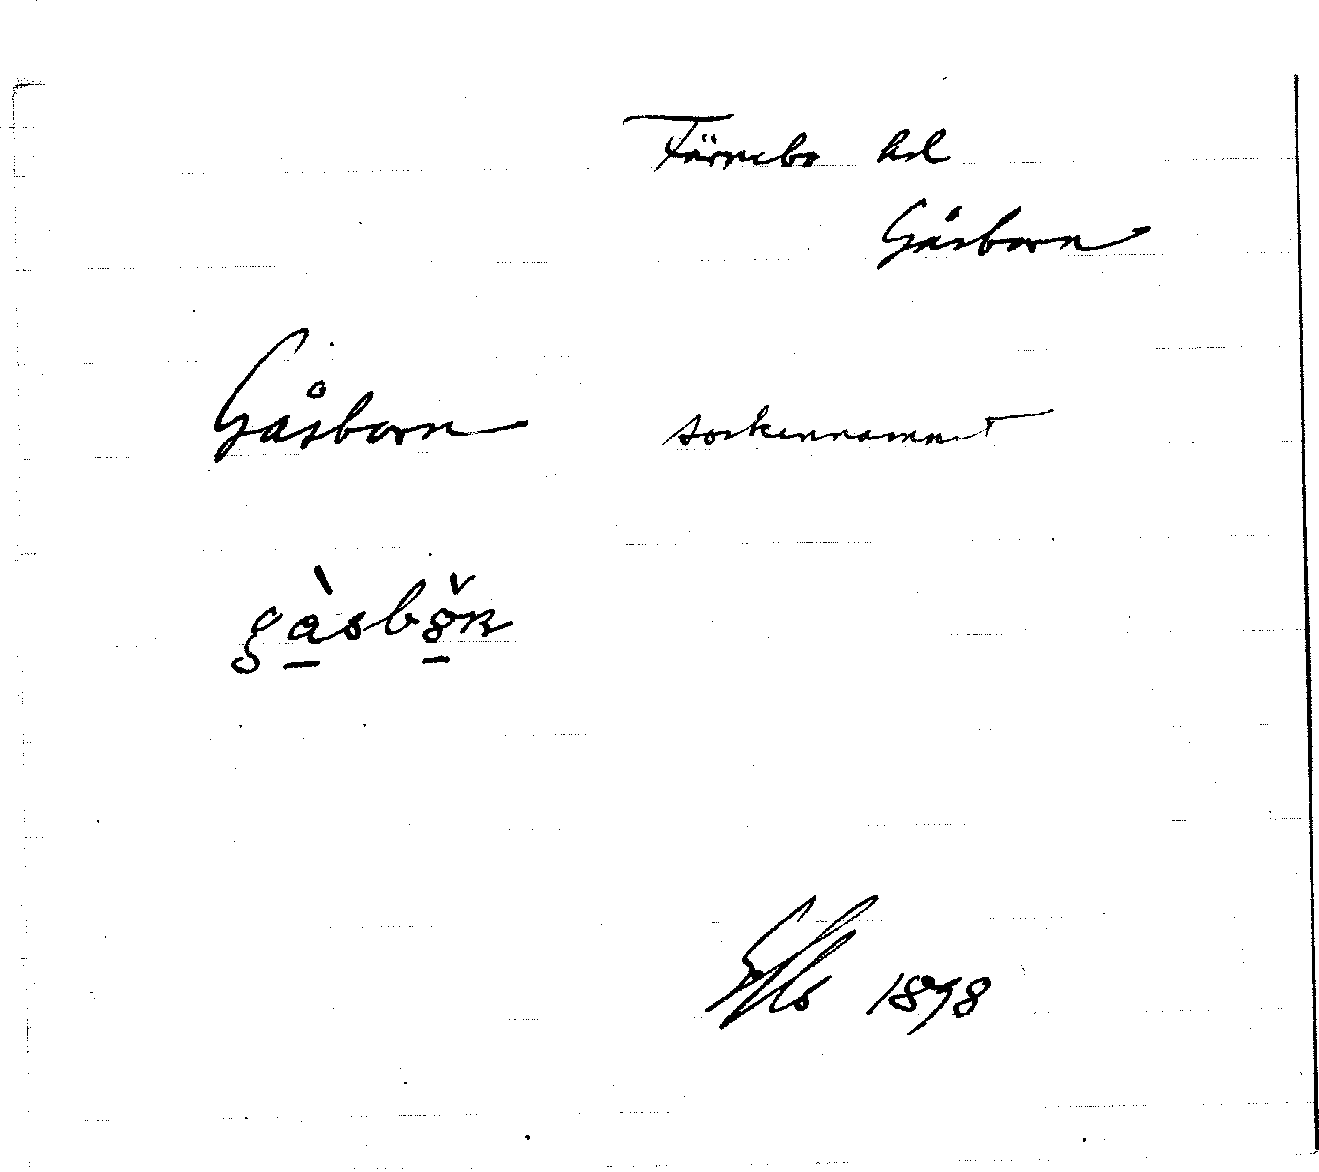 Färnebo hd
Gåsborn
Gåsborn sockennamnet
1898